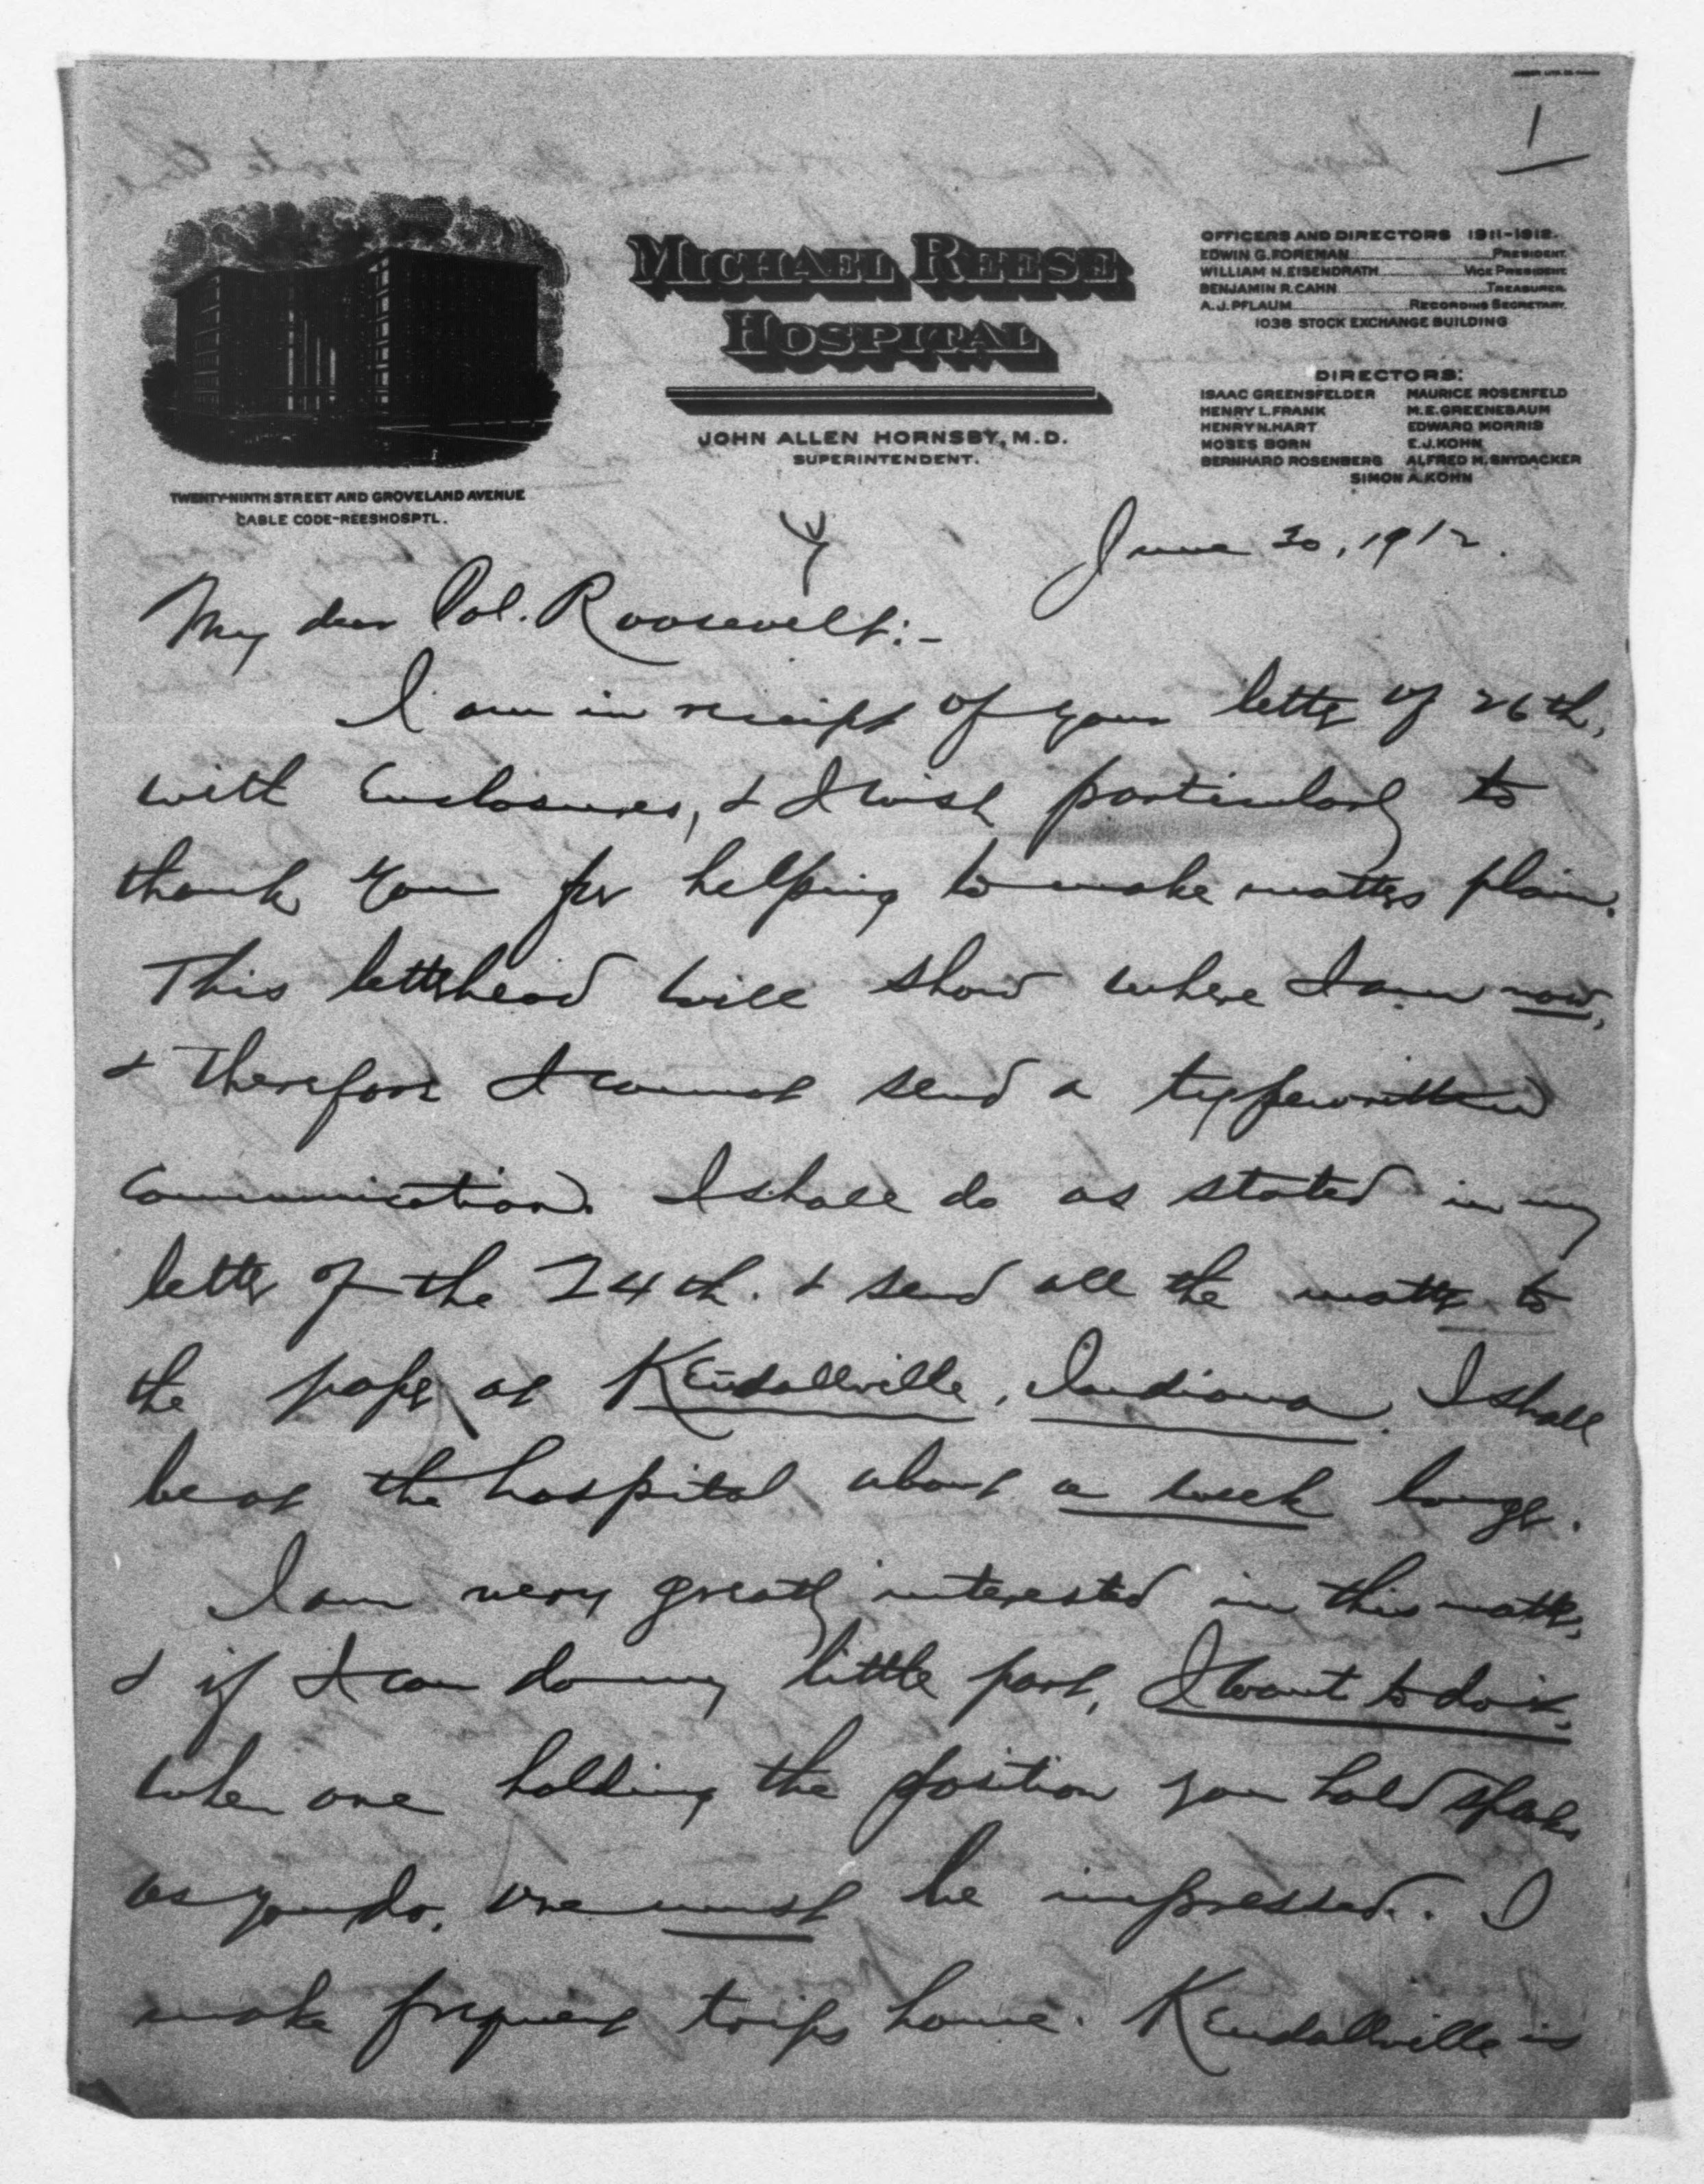 1
MICHAEL REESE
HOSPITAL
JOHN ALLEN HORNSBY, M.D.
SUPERINTENDENT.
TWENTY-NINTH STREET AND GROVELAND AVENUE
CABLE CODE-REESHOSPTL.
OFFICERS AND DIRECTORS 1911-1912.
EDWIN G. FOREMAN PRESIDENT.
WILLIAM N. EISENDRATH VICE PRESIDENT.
BENJAMIN R. CAHN TREASURER.
A.J. PFLAUM RECORDING SECRETARY.
1038 STOCK EXCHANGE BUILDING
DIRECTORS:
ISAAC GREENSFELDER MAURICE ROSENFELD
HENRY L. FRANK M.E. GREENEBAUM
HENRY N. HART EDWARD MORRIS
MOSES BORN E.J. KOHN
BERNHARD ROSENBERG ALFRED M. SNYDACKER
SIMON A. KOHN
June 30, 1912.
My dear Col. Roosevelt:-
I am in receipt of your letter of 26th,
with enclosures, & I wish particularly to
thank you for helping to make matters plain.
This letterhead will show where I am now,
& therefore I cannot send a typewritten
communication. I shall do as stated in my
letter of the 24th. & send all the matter to
the paper at Kendallville, Indiana. I shall
be at the hospital about a week longer.
I am very greatly interested in this matter,
& if I can do my little part, I want to do it.
When one holding the position you hold speaks
as you do, one must be impressed. I
make frequent trips home. Kendallville is